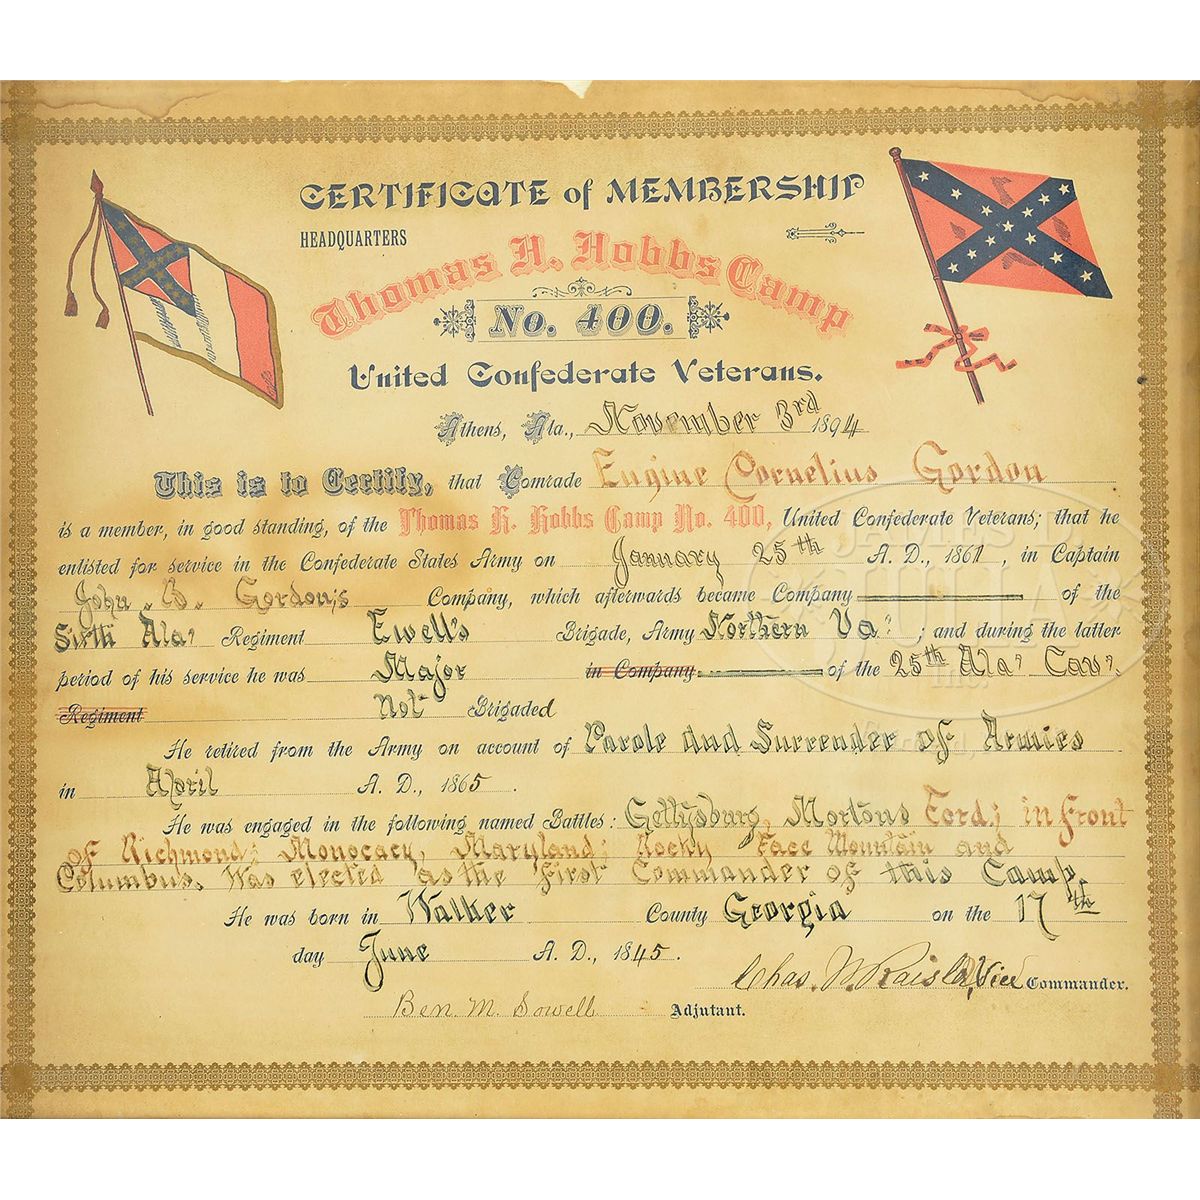 CERTIFICATE of MEMBERSHIP
HEADQUARTERS
Thomas H. Hobbs Camp
No. 400.
United Confederate Veterans.
Athens, Ala., November 3rd 1894
This is to Certify, that Comrade Eugine Cornelius Gordon
is a member, in good standing, of the Thomas H. Hobbs Camp No. 400, United Confederate Veterans; that he
enlisted for service in the Confederate States Army on January 25th A. D., 1861, in Captain
John. B. Gordon's Company, which afterwards became Company of the
Sixth Ala. Regiment Ewell's Brigade, Army Northern Va. ; and during the latter
period of his service he was Major in Company of the 25th Ala. Cav.
Regiment Not Brigaded
He retired from the Army on account of Parole and Surrender of Armies
in April A. D., 1865.
He was engaged in the following named Battles: Gettysburg, Mortons Ford; in Front
of Richmond; Monocacy, Maryland; Rocky Face Mountain and
Columbus. Was elected as the First Commander of this Camp.
He was born in Walker County Georgia on the 17th
day June A. D., 1845.
Chas. Vice Commander.
Ben. M. Sowell Adjutant.
JAMES D.
JULIA
Inc.